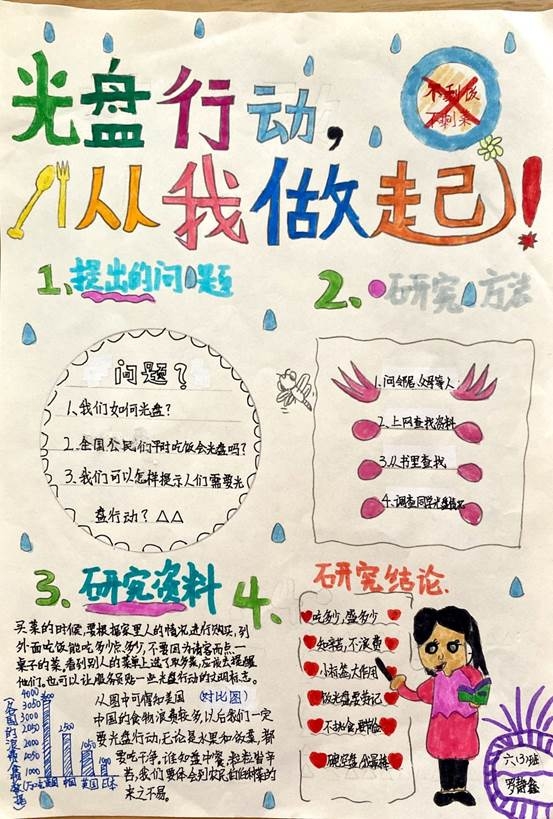 光盘行动，
从我做起！
不剩饭
不剩菜
1、提出的问题
2、研究方法
问题？
1、我们如何光盘？
2、全国公民们平时吃饭会光盘吗？
3、我们可以怎样提示人们需要光
盘行动？△△
1、问邻居、父母等人
2、上网查找资料
3、从书里查找
4、调查同学光盘情况
3、研究资料
4、研究结论
买菜的时候，要根据家里人的情况进行购买，到
外面吃饭能吃多少点多少，不要因为请客而点一
桌子的菜，看到别人的菜单上
他们，也可以让服务员贴一些光盘行动的文明标志。
从图中可得知美国（对比图）
中国的食物浪费较多，以后我们一定
要光盘行动，无论是水果和饭菜，都
要吃干净，谁知盘中餐，粒粒皆辛
苦，我们要体会到农民伯伯种菜的
来之不易。
4000
3050
3000
2050
2000
1050
1000
1500
1050
1000
美国 中国 英国 日本
吃多少，盛多少
如若，不浪费
小标签，大作用
饭光盘要劳记
不挑食
碗空盘
六（3）班